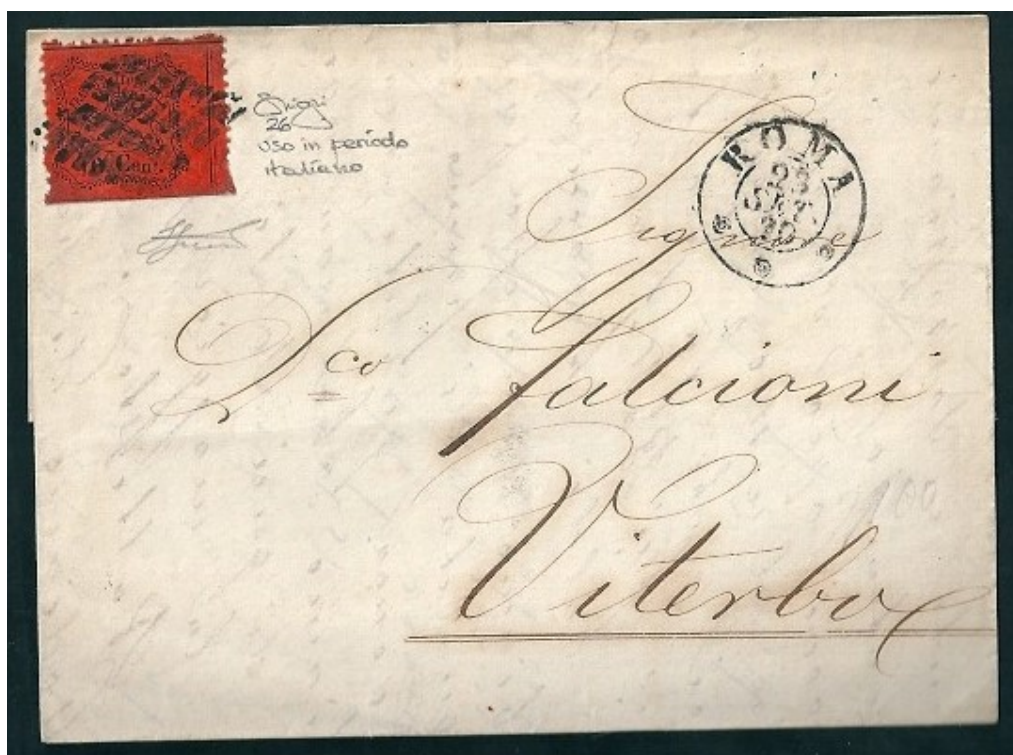 Cent.
26
uso in periodo
italiano
ROMA
SET.
70
Signore
Dco Falcioni
Viterbo
100